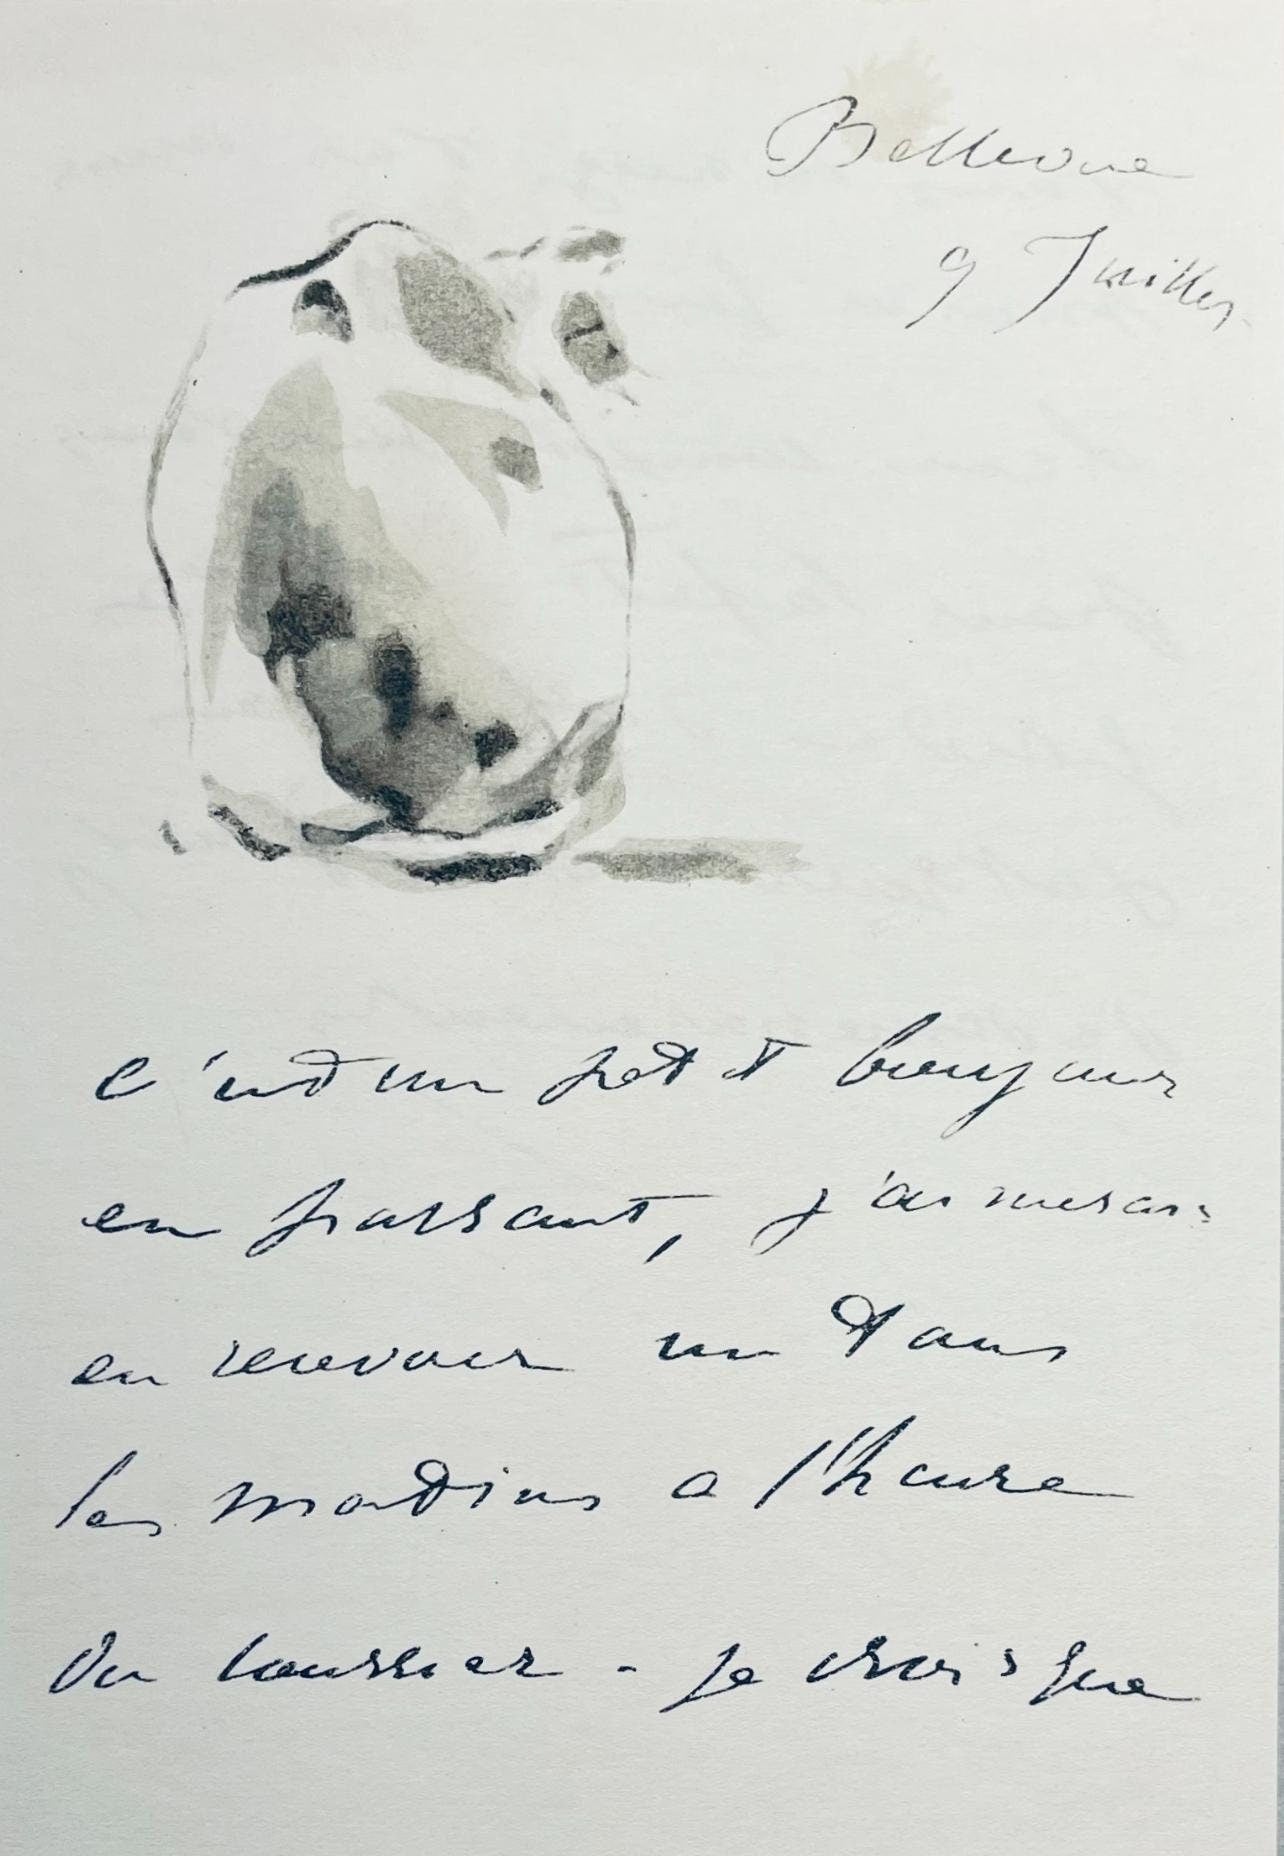 Bellevue
9 Juillet.
c'est un petit bonjour
en passant, j'aimerais
en recevoir un tous
les matins a l'heure
du courrier - je crois que